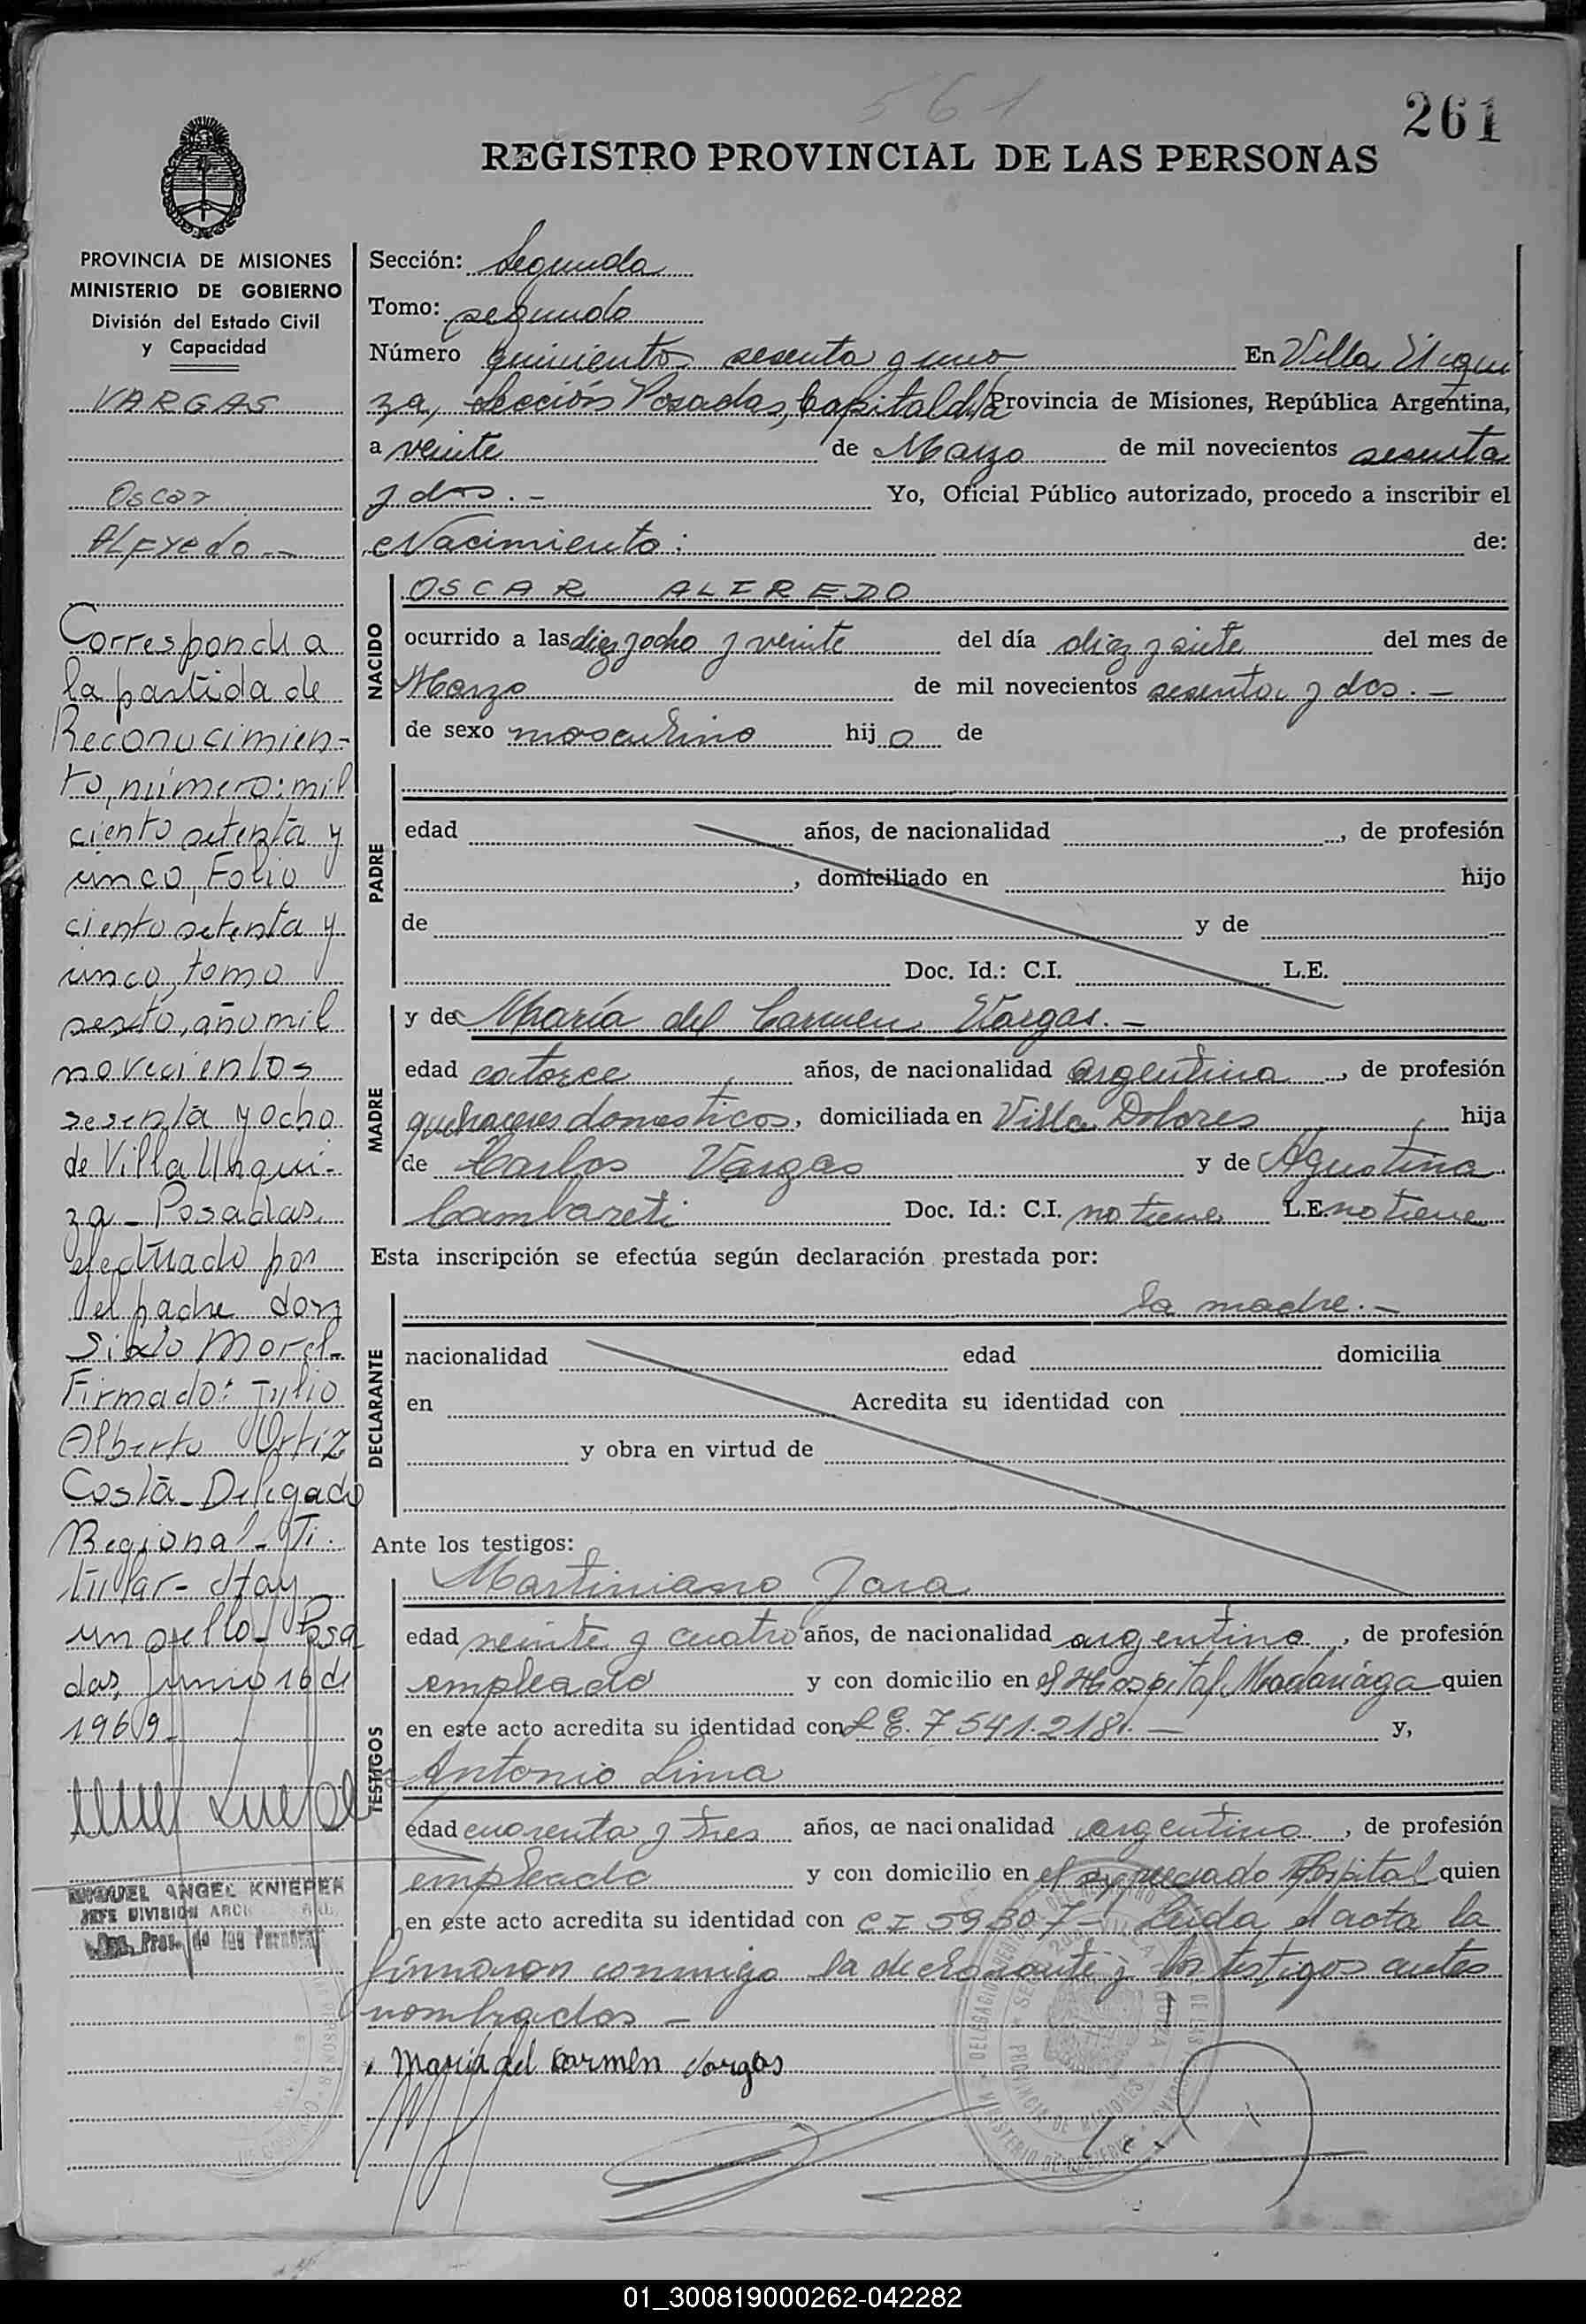 561
261
REGISTRO PROVINCIAL DE LAS PERSONAS
PROVINCIA DE MISIONES
MINISTERIO DE GOBIERNO
División del Estado Civil
y Capacidad
VARGAS
Oscar
ALFredo.-
Corresponde a
la partida de
Reconocimien-
to, número: mil
ciento setenta y
cinco, Folio
ciento setenta y
cinco, tomo
sexto, año mil
novecientos
sesenta y ocho
de Villa Urqui-
za - Posadas,
efectuado por
el padre don
Sixto Morel-
Firmado: Julio
Alberto Ortiz
Costa - Delegado
Regional - Ti-
tular - Hay
un sello - Posa
das, Junio 16 de
1969
MIGUEL ANGEL KNIEPER
JEFE DIVISION
Sección: Segunda
Tomo: segundo
Número quiniento sesenta y uno En Villa Urqui
za, Sección Posadas, Capital de la Provincia de Misiones, República Argentina,
a veinte de Marzo de mil novecientos sesenta
y dos.- Yo, Oficial Público autorizado, procedo a inscribir el
Nacimiento: de:
NACIDO
OSCAR ALFREDO
ocurrido a las diez y ocho y veinte del día diez y siete del mes de
Marzo de mil novecientos sesenta y dos.-
de sexo masculino hijo de
PADRE
edad años, de nacionalidad , de profesión
, domiciliado en hijo
de y de
Doc. Id.: C.I. L.E.
MADRE
y de María del Carmen Vargas.-
edad catorce años, de nacionalidad argentina, de profesión
quehaceres domesticos, domiciliada en Villa Dolores hija
de Carlos Vargas y de Agustina
Cambareti Doc. Id.: C.I. no tiene L.E. no tiene
Esta inscripción se efectúa según declaración prestada por:
DECLARANTE
la madre.-
nacionalidad edad domicilia
en Acredita su identidad con
y obra en virtud de
Ante los testigos:
TESTIGOS
Martiniano Jara
edad veinte y cuatro años, de nacionalidad argentino, de profesión
empleado y con domicilio en el Hospital Madariaga quien
en este acto acredita su identidad con L.E. 7541.218.- y,
Antonio Lima
edad cuarenta y tres años, de nacionalidad argentino, de profesión
empleado y con domicilio en el expresado Hospital quien
en este acto acredita su identidad con C I 59.307- Leída el acta la
firmaron conmigo la declarante y los testigos antes
nombrados -
Maria del Carmen Vargas
01_300819000262-042282